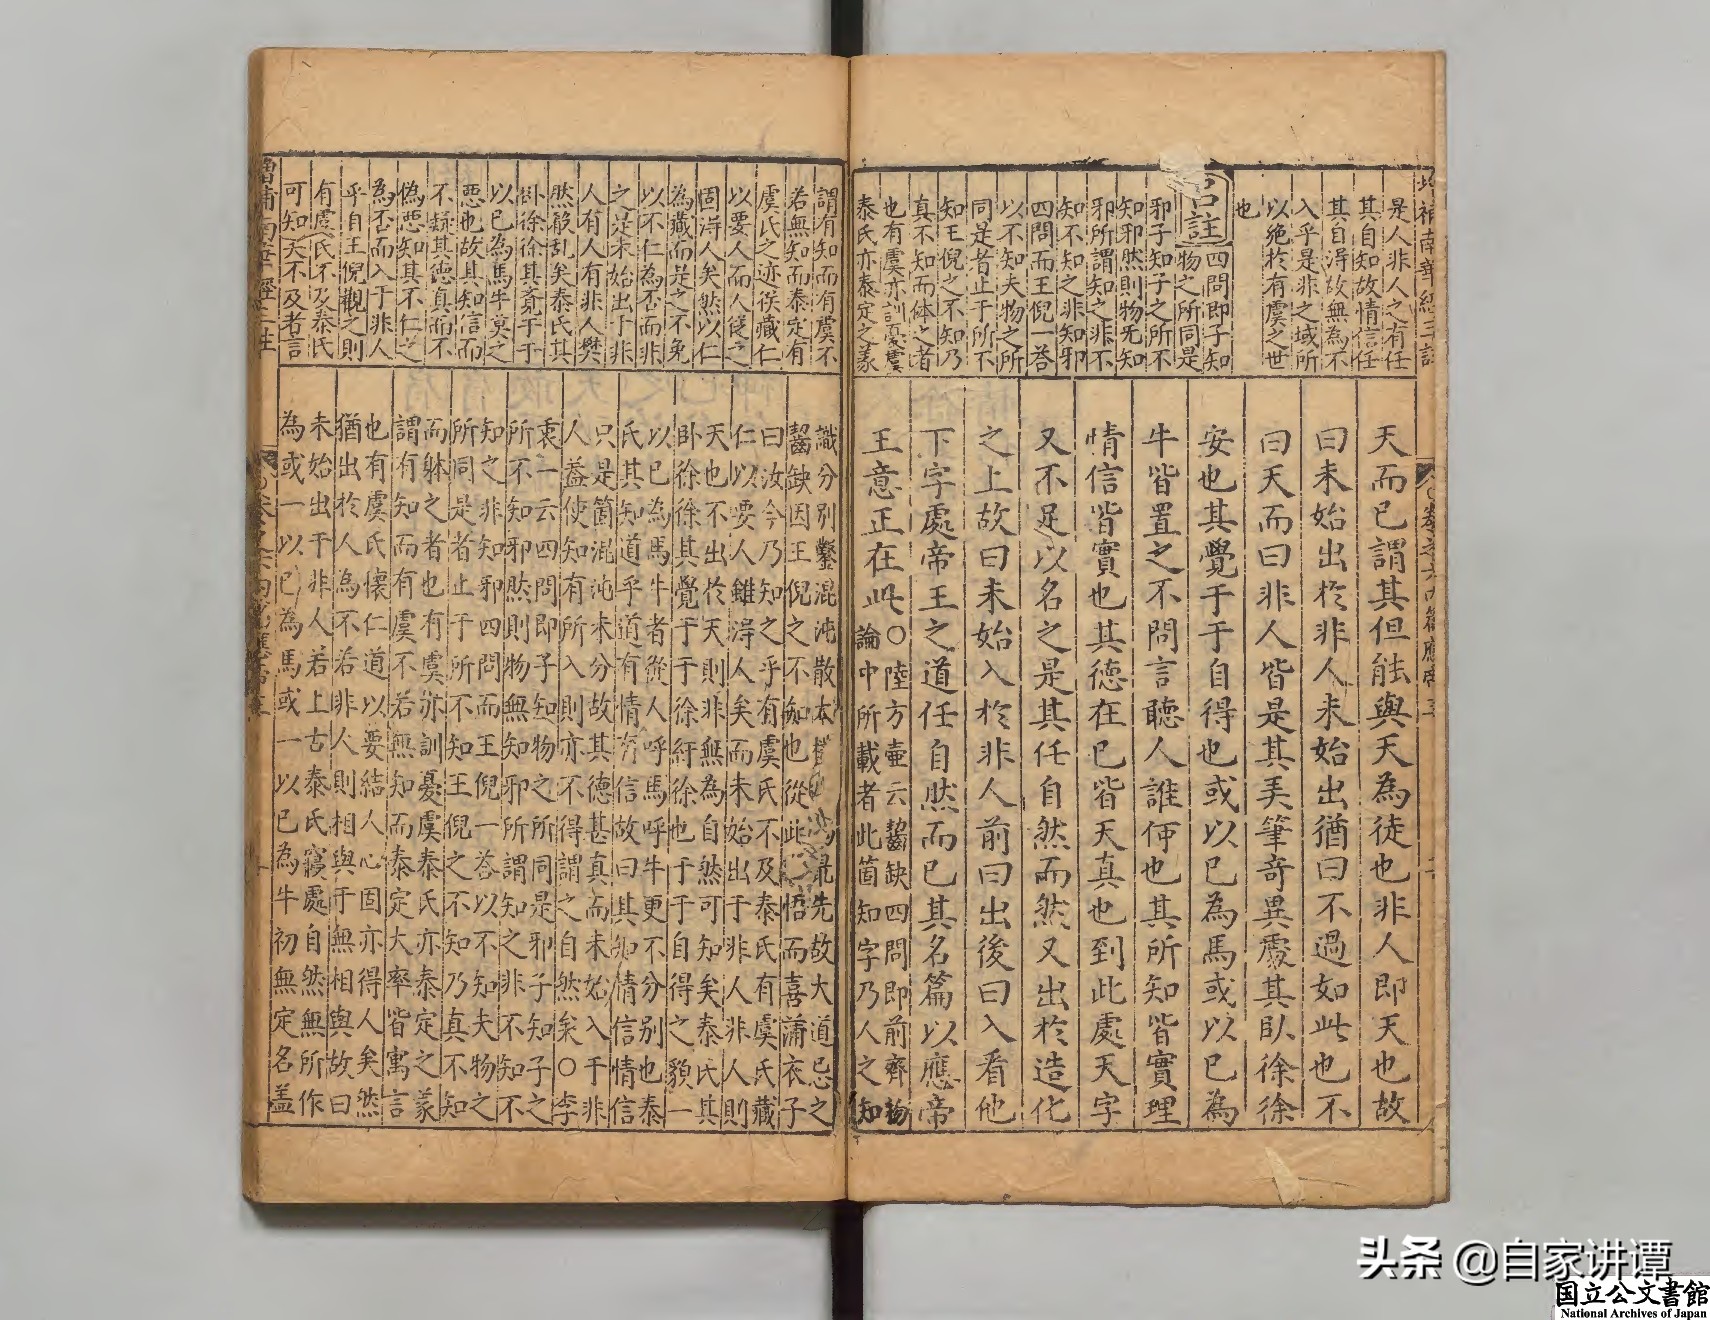 增補南華經三註
卷之六內篇應帝王
是人非人之有任
其自知故情信任
其自淂故無為不
入乎是非之域所
以絶於有虞之世
也
呂註
四問即子知
物之所同是
邪子知子之所不
知邪然則物旡知
邪所謂知之非不
知不知之非知邪
四問而王倪一荅
以不知夫物之所
同是者止于所不
知王倪之不知乃
真不知而体之者
也有虞亦訓憂虞
泰氏亦泰定之義
天而已謂其但能與天為徒也非人即天也故
曰未始出於非人未始出猶曰不過如此也不
曰天而曰非人皆是其弄筆奇異處其臥徐徐
安也其覺于于自得也或以已為馬或以已為
牛皆置之不問言聽人誰何也其所知皆實理
情信皆實也其德在已皆天真也到此處天字
又不足以名之是其任自然而然又出於造化
之上故曰未始入於非人前曰出後曰入看他
下字處帝王之道任自然而已其名篇以應帝
王意正在此○陸方壺云齧缺四問即前齊物
論中所載者此箇知字乃人之知
謂有知而有虞不
若無知而泰定有
虞氏之迹俟藏仁
以要人而人従之
固淂人矣然以仁
為藏而是之不免
以不仁為否而非
之是未始出于非
人有人有非人樊
然殽乱矣泰氏其
卧徐徐其覔于于
以已為馬牛莫之
惡也故其知信而
不疑其徳真而不
偽惡知其不仁之
為否而入于非人
乎自王倪觀之則
有虞氏不及泰氏
可知天不及者言
識分别鑿混沌散本先故大道忌之
齧缺因王倪之不知也從此悟而喜蒲衣子
曰汝今乃知之乎有虞氏不及泰氏有虞氏藏
仁以要人雖淂人矣而未始出于非人非人則
天也不出於天則非無為自然可知矣泰氏其
卧徐徐其覺于于徐紓徐也于于自得之貌一
以已為馬牛者從人呼馬呼牛更不分别也泰
氏其知道乎道有情有信故曰其知情信情信
只是箇混沌未分故其德甚真而未始入于非
人葢使知有所入則亦不得謂之自然矣○李
衷一云四問即子知物之所同是邪子知子之
所不知邪然則物無知邪所謂知之非不知不
知之非知邪四問而王倪一荅以不知夫物之
所同是者止于所不知王倪之不知乃真不知
而躰之者也有虞亦訓憂虞泰氏亦泰定之義
謂有知而有虞不若無知而泰定大率皆寓言
也有虞氏懷仁道以要結人心固亦得人矣然
猶出於人為不若非人則相與于無相與故曰
未始出于非人若上古泰氏寢處自然無所作
為或一以已為馬或一以已為牛初無定名盖
增補南華經三註
头条 @自家讲谭
国立公文書館
National Archives of Japan